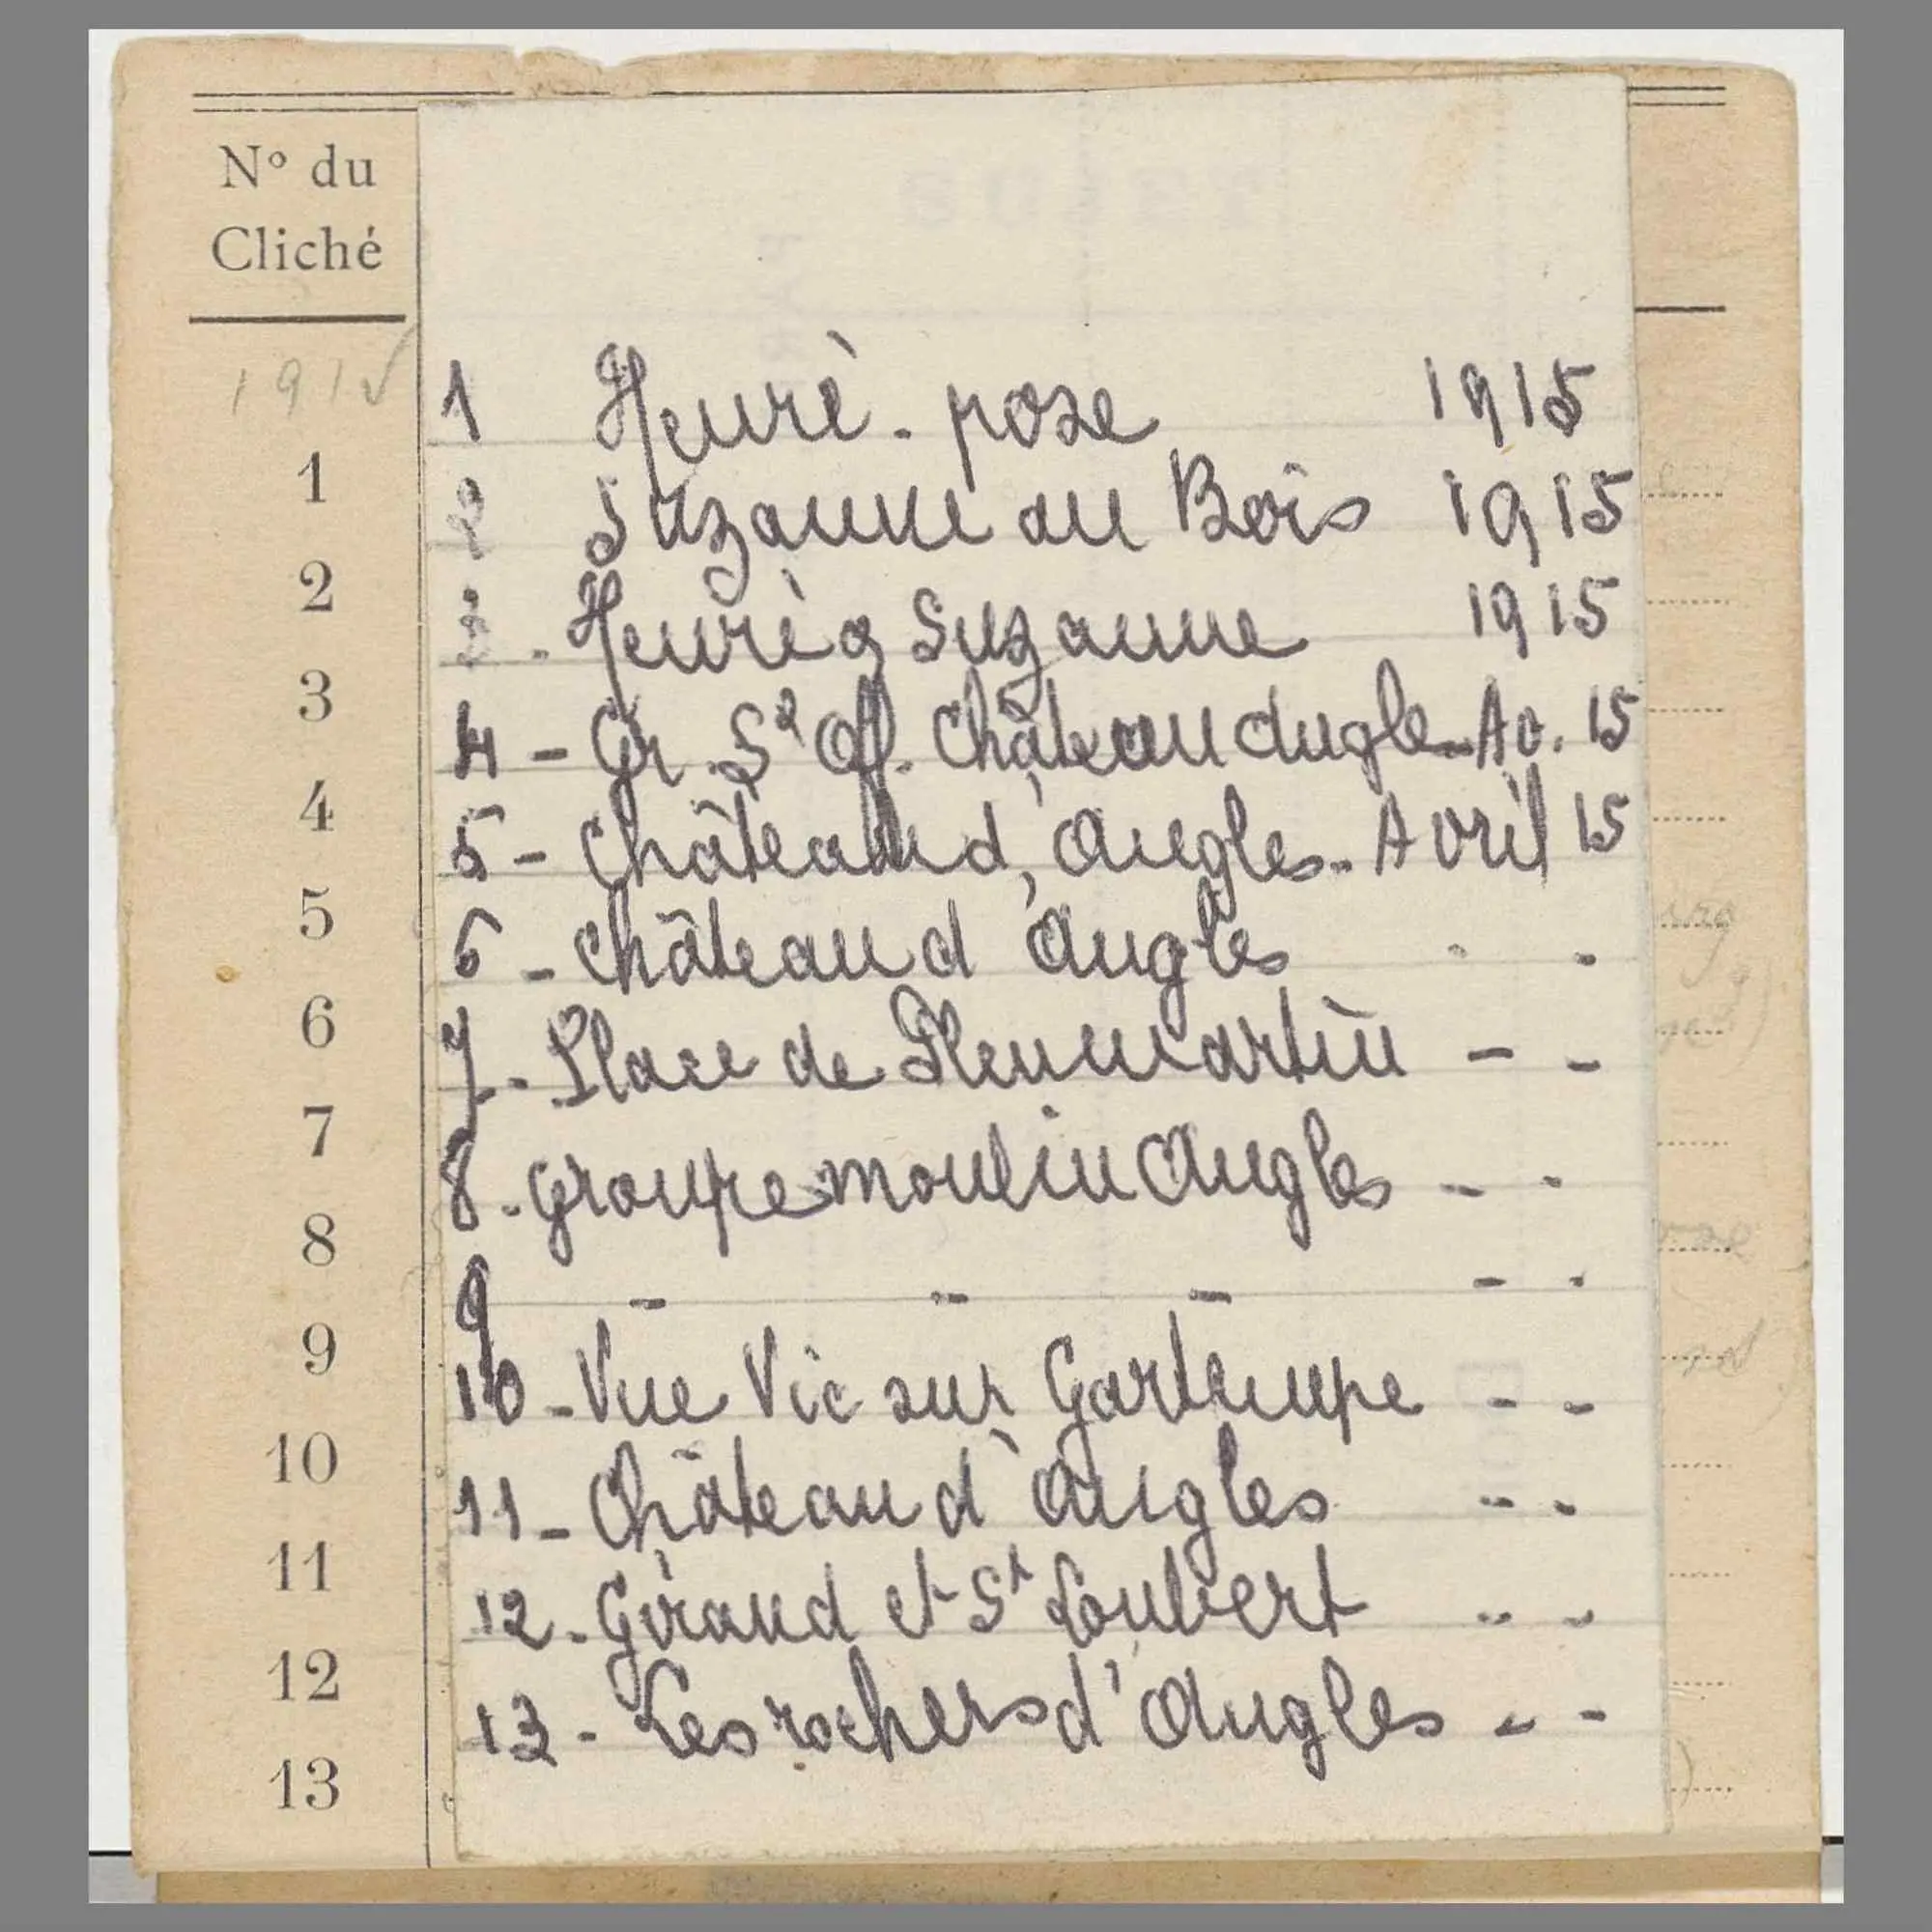 N° du
Cliché
1915
1
2
3
4
5
6
7
8
9
10
11
12
13
1 Henri - pose 1915
2 Suzanne au Bois 1915
3 - Henri & Suzanne 1915
4 - Gr. S² Off. Château dugle - Av. 15
5 - Château d'Angles - Avril 15
6 - Château d'Angles - -
7 - Place de Pleumartin - -
8 - Groupe moulin Angles - -
9 - - - - -
10 - Vue Vic sur Gartempe - -
11 - Château d'Angles - -
12 - Giraud et St Loubert - -
13 - Les rochers d'Angles - -